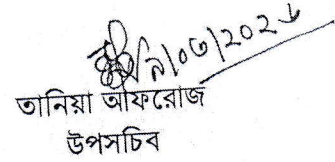 ৯/০৩/২০২৬
তানিয়া আফরোজ
উপসচিব